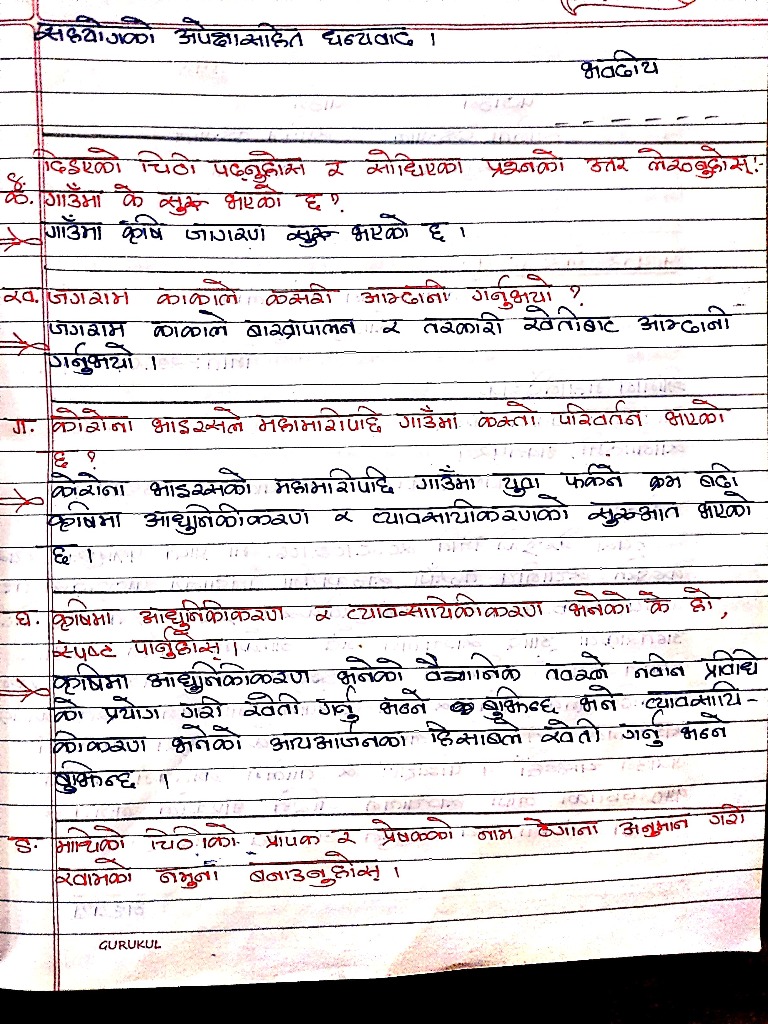 सहयोगको अपेक्षासहित धन्यवाद ।
भवदीय
- - - - - - -
४. दिइएको चिठी पढ्नुहोस र सोधिएका प्रश्नको उत्तर लेख्नुहोस्:-
क. गाउँमा के सुरु भएको छ ?
गाउँमा कृषि जागरण सुरु भएको छ ।
ख. जगराम काकाले कसरी आम्दानी गर्नुभयो ?
जगराम काकाले बाख्रापालन र तरकारी खेतीबाट आम्दानी
गर्नुभयो ।
ग. कोरोना भाइरसले महामारीपछि गाउँमा कस्तो परिवर्तन भएको
छ ?
कोरोना भाइरसको महामारीपछि गाउँमा युवा फर्कने क्रम बढी
कृषिमा आधुनिकीकरण र व्यावसायीकरणको सुरुआत भएको
छ ।
घ. कृषिमा आधुनिकीकरण र व्यावसायिकीकरण भनेको के हो,
स्पष्ट पार्नुहोस् ।
कृषिमा आधुनिकीकरण भनेको वैज्ञानिक तवरले नवीन प्रविधि
को प्रयोग गरी खेती गर्नु भन्ने बुझिन्छ भने व्यावसायि-
कीकरण भनेको आयआर्जनका हिसाबले खेती गर्नु भन्ने
बुझिन्छ ।
ङ. माथिको चिठीको प्रापक र प्रेषकको नाम ठेगाना अनुमान गरी
खामको नमुना बनाउनुहोस् ।
GURUKUL